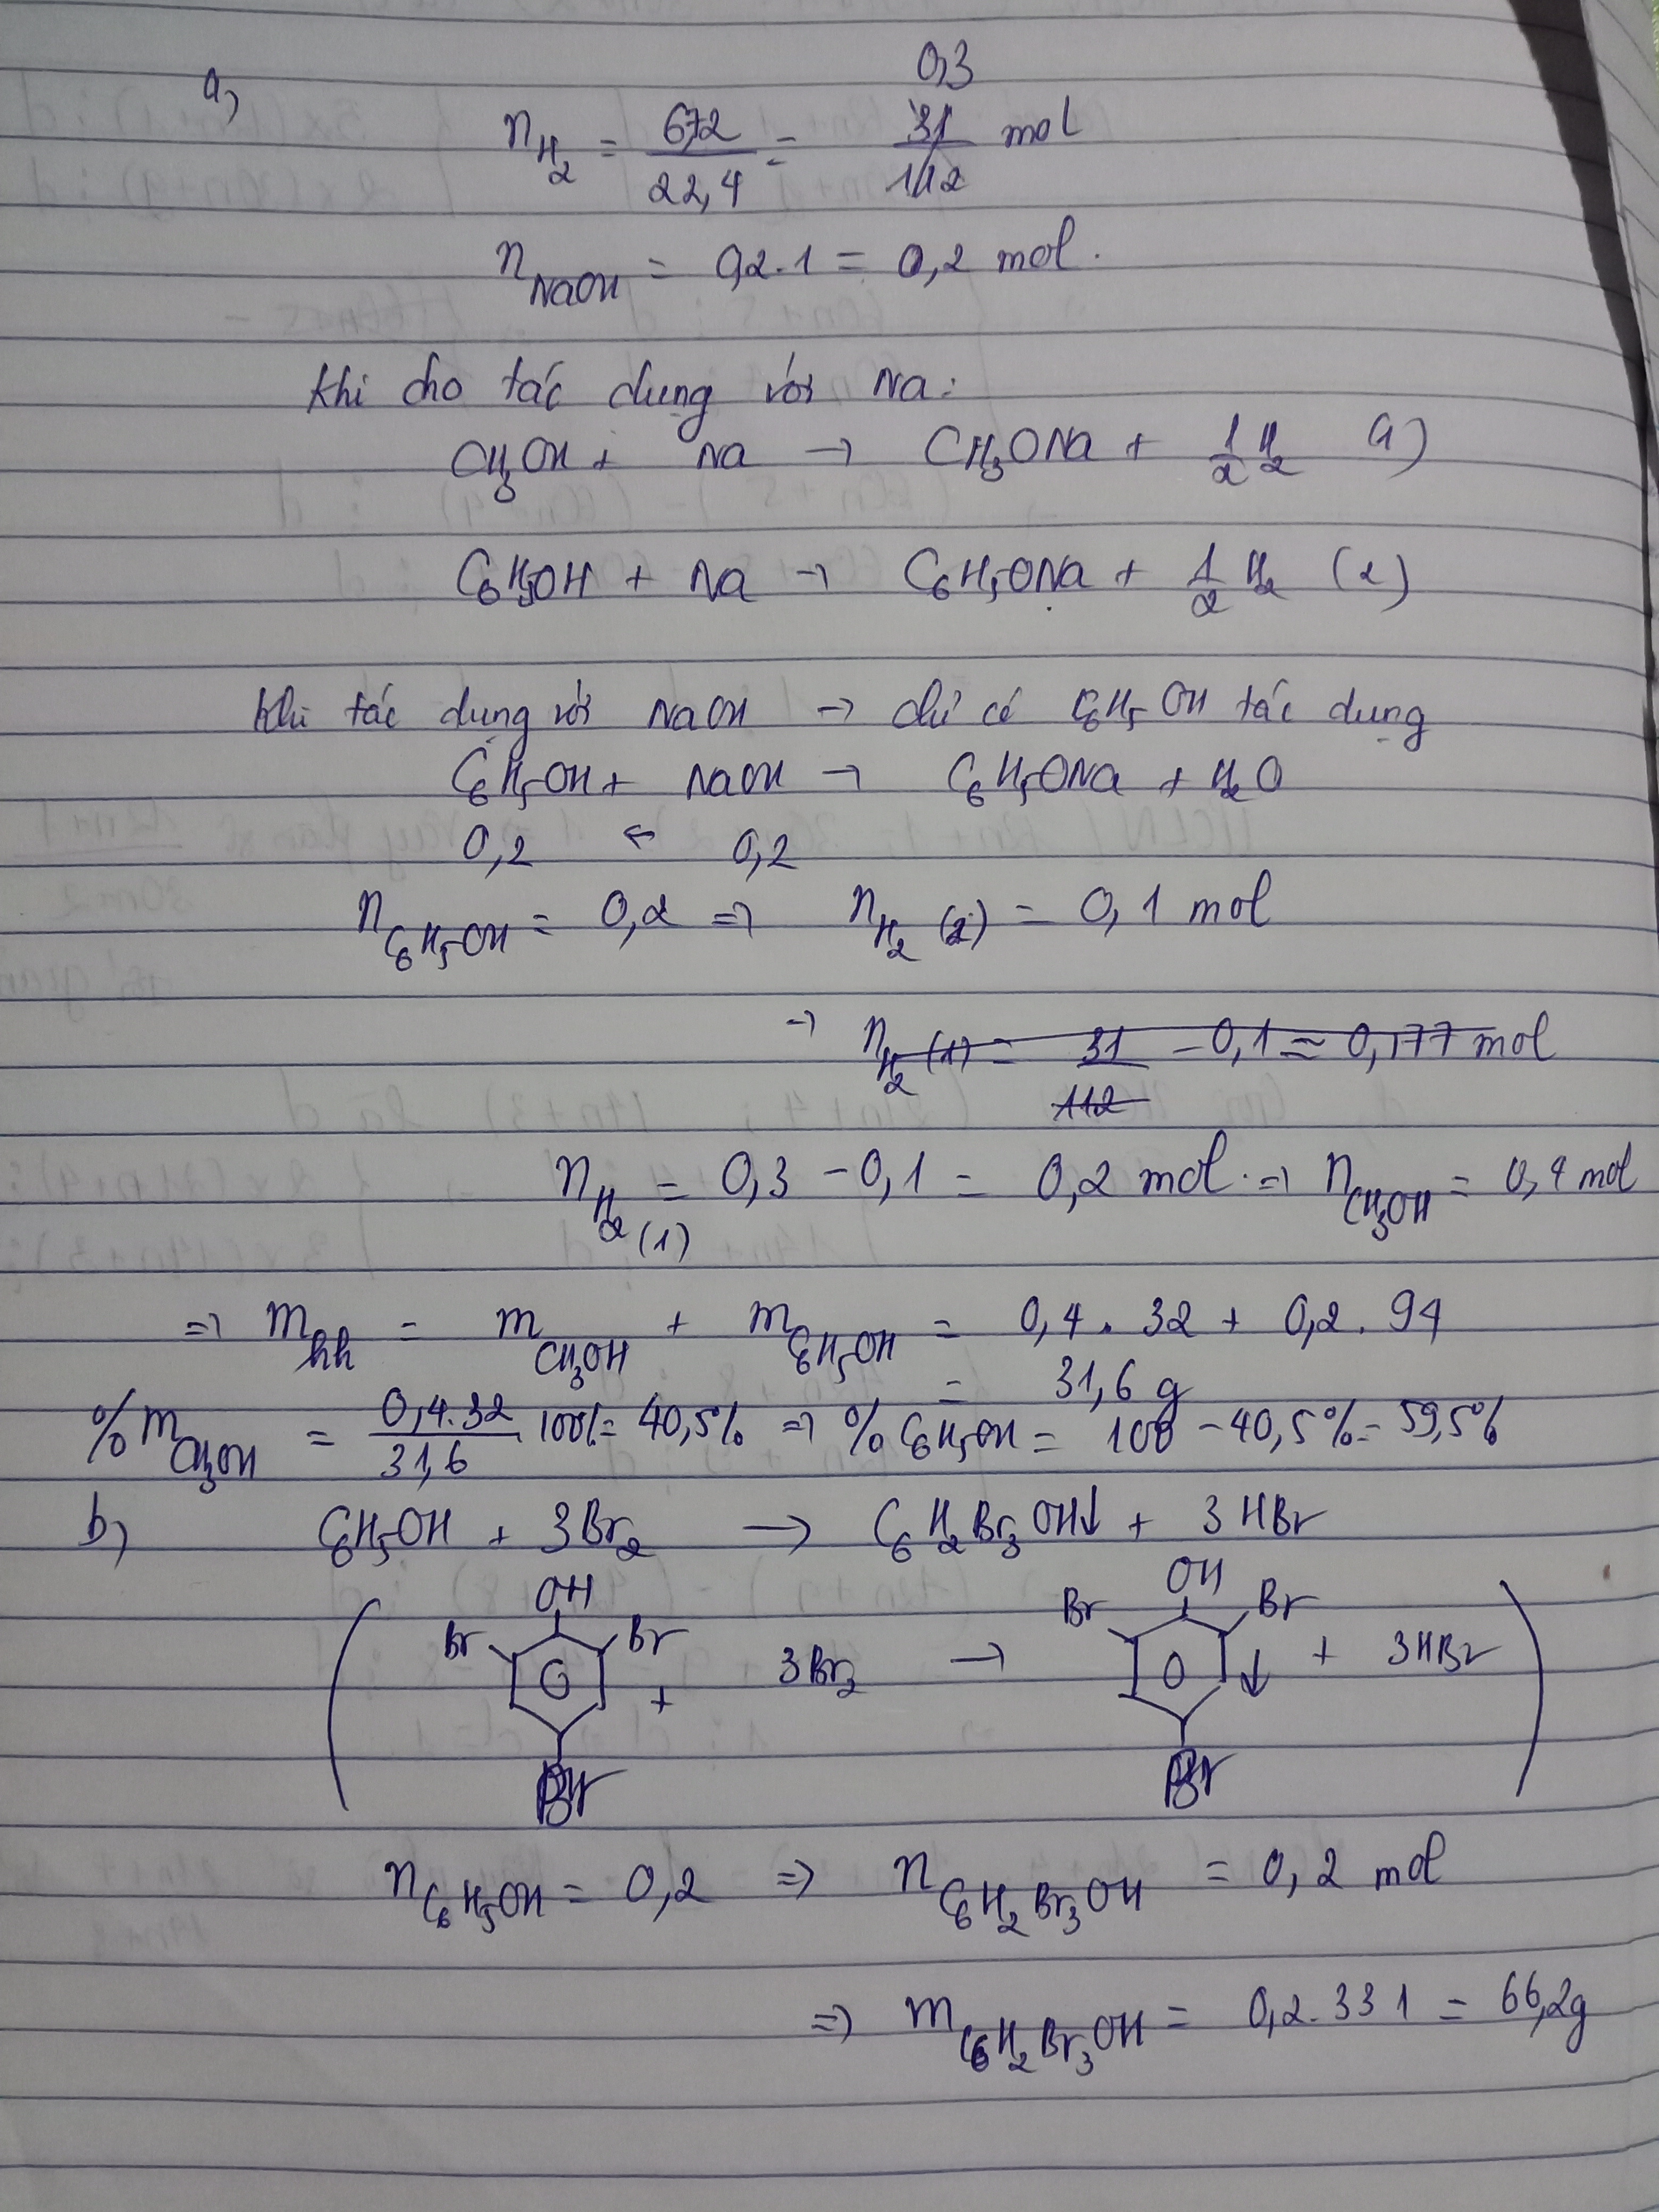 a,
0,3
n H2 = 6,72 / 22,4 = 31 / 112 mol
n NaOH = 0,2.1 = 0,2 mol.
Khi cho tác dụng với Na:
CH3OH + Na → CH3ONa + 1/2 H2 (1)
C6H5OH + Na → C6H5ONa + 1/2 H2 (2)
Khi tác dụng với NaOH → chỉ có C6H5OH tác dụng
C6H5OH + NaOH → C6H5ONa + H2O
0,2 ← 0,2
n C6H5OH = 0,2 => n H2 (2) = 0,1 mol
→ n H2 (1) = 31/112 - 0,1 = 0,177 mol
n H2 (1) = 0,3 - 0,1 = 0,2 mol. => n CH3OH = 0,4 mol
=> m hh = m CH3OH + m C6H5OH = 0,4 . 32 + 0,2 . 94
= 31,6 g
% m CH3OH = 0,4.32 / 31,6 . 100% = 40,5% => % C6H5OH = 100 - 40,5% = 59,5%
b, C6H5OH + 3Br2 → C6H2Br3OH↓ + 3HBr
OH OH
Br Br Br Br
+ 3Br2 → ↓ + 3HBr
Br Br
n C6H5OH = 0,2 => n C6H2Br3OH = 0,2 mol
=> m C6H2Br3OH = 0,2.331 = 66,2g